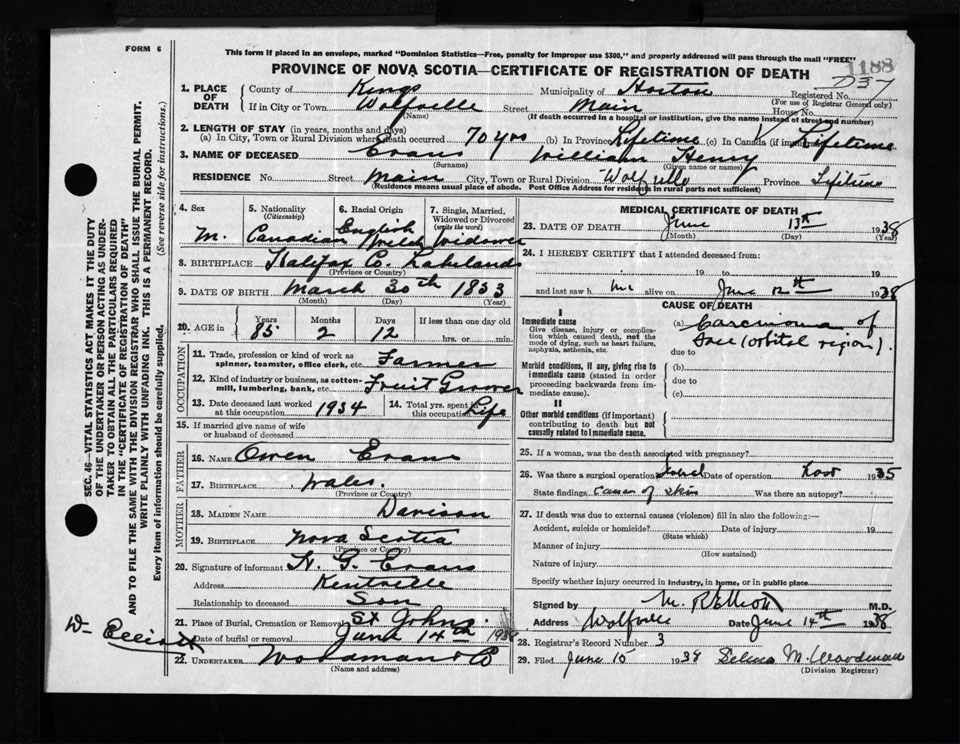 FORM 6
This form if placed in an envelope, marked "Dominion Statistics—Free, penalty for improper use $300," and properly addressed will pass through the mail "FREE"
1188
737
PROVINCE OF NOVA SCOTIA—CERTIFICATE OF REGISTRATION OF DEATH
1. PLACE OF DEATH County of Kings Municipality of Horton Registered No.
(For use of Registrar General only)
If in City or Town Wolfville Street Main House No.
(Name) (If death occurred in a hospital or institution, give the name instead of street and number)
2. LENGTH OF STAY (in years, months and days)
(a) In City, Town or Rural Division where death occurred 70 yrs (b) In Province Lifetime (c) In Canada (if immigrant) Lifetime
3. NAME OF DECEASED Evans William Henry
(Surname) (Given name or names)
RESIDENCE No. Street Main City, Town or Rural Division Wolfville Province Lifetime
(Residence means usual place of abode. Post Office Address for residents in rural parts not sufficient)
4. Sex M.
5. Nationality (Citizenship) Canadian
6. Racial Origin English Welch
7. Single, Married, Widowed or Divorced (write the word) Widower
8. BIRTHPLACE Halifax Co. Lakelands
(Province or Country)
9. DATE OF BIRTH March 30th 1853
(Month) (Day) (Year)
10. AGE in Years 85 Months 2 Days 12 If less than one day old hrs. or min.
OCCUPATION
11. Trade, profession or kind of work as spinner, teamster, office clerk, etc. Farmer
12. Kind of industry or business, as cotton-mill, lumbering, bank, etc. Fruit Grower
13. Date deceased last worked at this occupation 1934 14. Total yrs. spent in this occupation Life
15. If married give name of wife or husband of deceased
FATHER
16. NAME Owen Evans
17. BIRTHPLACE Wales.
(Province or Country)
MOTHER
18. MAIDEN NAME Davison
19. BIRTHPLACE Nova Scotia
(Province or Country)
20. Signature of informant N. G. Evans
Address Kentville
Relationship to deceased Son
21. Place of Burial, Cremation or Removal St Johns
Date of burial or removal June 14th 1938
22. UNDERTAKER Co
(Name and address)
MEDICAL CERTIFICATE OF DEATH
23. DATE OF DEATH June 13th 1938
(Month) (Day) (Year)
24. I HEREBY CERTIFY that I attended deceased from:
19 to 19
and last saw h im alive on June 12th 1938
CAUSE OF DEATH
I
Immediate cause
Give disease, injury or complication which caused death, not the mode of dying, such as heart failure, asphyxia, asthenia, etc.
(a) Carcinoma of face (orbital region).
due to
Morbid conditions, if any, giving rise to immediate cause (stated in order proceeding backwards from immediate cause).
(b)
due to
(c)
II
Other morbid conditions (if important) contributing to death but not causally related to immediate cause.
25. If a woman, was the death associated with pregnancy?
26. Was there a surgical operation Date of operation 1935
State findings cancer of skin Was there an autopsy?
27. If death was due to external causes (violence) fill in also the following:—
Accident, suicide or homicide? Date of injury 19
(State which)
Manner of injury
(How sustained)
Nature of injury
Specify whether injury occurred in industry, in home, or in public place
Signed by M. R Elliott M.D.
Address Wolfville Date June 14th 1938
28. Registrar's Record Number 3
29. Filed June 15 1938 Selina M. Woodman
(Division Registrar)
SEC. 46—VITAL STATISTICS ACT MAKES IT THE DUTY
OF THE UNDERTAKER OR PERSON ACTING AS UNDER-
TAKER TO OBTAIN ALL THE PARTICULARS REQUIRED
IN THE "CERTIFICATE OF REGISTRATION OF DEATH"
AND TO FILE THE SAME WITH THE DIVISION REGISTRAR WHO SHALL ISSUE THE BURIAL PERMIT.
WRITE PLAINLY WITH UNFADING INK. THIS IS A PERMANENT RECORD.
Every item of information should be carefully supplied. (See reverse side for instructions.)
Elliott